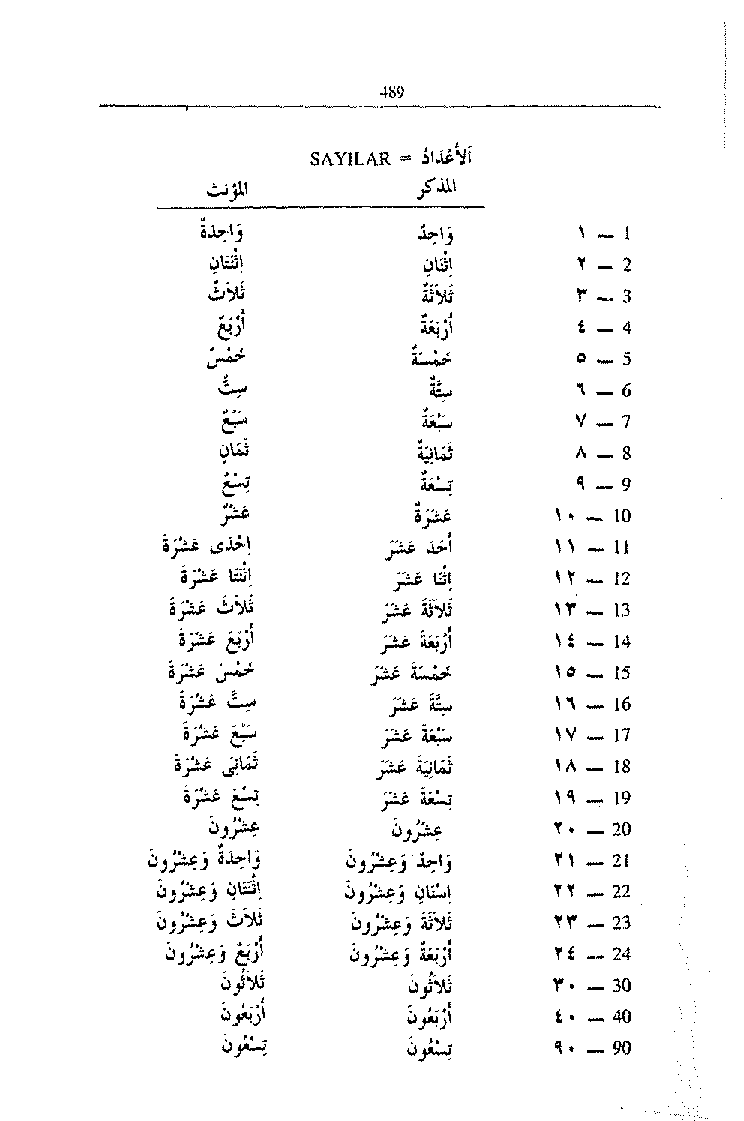 489
SAYILAR = اَلْأَعْدَادُ
المذكر المؤنث
1 — ١ وَاحِدٌ وَاحِدَةٌ
2 — ٢ اِثْنَانِ اِثْنَتَانِ
3 — ٣ ثَلَاثَةٌ ثَلَاثٌ
4 — ٤ أَرْبَعَةٌ أَرْبَعٌ
5 — ٥ خَمْسَةٌ خَمْسٌ
6 — ٦ سِتَّةٌ سِتٌّ
7 — ٧ سَبْعَةٌ سَبْعٌ
8 — ٨ ثَمَانِيَةٌ ثَمَانٍ
9 — ٩ تِسْعَةٌ تِسْعٌ
10 — ١٠ عَشَرَةٌ عَشْرٌ
11 — ١١ أَحَدَ عَشَرَ اِحْدَى عَشْرَةَ
12 — ١٢ اِثْنَا عَشَرَ اِثْنَتَا عَشْرَةَ
13 — ١٣ ثَلَاثَةَ عَشَرَ ثَلَاثَ عَشْرَةَ
14 — ١٤ أَرْبَعَةَ عَشَرَ أَرْبَعَ عَشْرَةَ
15 — ١٥ خَمْسَةَ عَشَرَ خَمْسَ عَشْرَةَ
16 — ١٦ سِتَّةَ عَشَرَ سِتَّ عَشْرَةَ
17 — ١٧ سَبْعَةَ عَشَرَ سَبْعَ عَشْرَةَ
18 — ١٨ ثَمَانِيَةَ عَشَرَ ثَمَانِىَ عَشْرَةَ
19 — ١٩ تِسْعَةَ عَشَرَ تِسْعَ عَشْرَةَ
20 — ٢٠ عِشْرُونَ عِشْرُونَ
21 — ٢١ وَاحِدٌ وَعِشْرُونَ وَاحِدَةٌ وَعِشْرُونَ
22 — ٢٢ اِثْنَانِ وَعِشْرُونَ اِثْنَتَانِ وَعِشْرُونَ
23 — ٢٣ ثَلَاثَةٌ وَعِشْرُونَ ثَلَاثٌ وَعِشْرُونَ
24 — ٢٤ أَرْبَعَةٌ وَعِشْرُونَ أَرْبَعٌ وَعِشْرُونَ
30 — ٣٠ ثَلَاثُونَ ثَلَاثُونَ
40 — ٤٠ أَرْبَعُونَ أَرْبَعُونَ
90 — ٩٠ تِسْعُونَ تِسْعُونَ